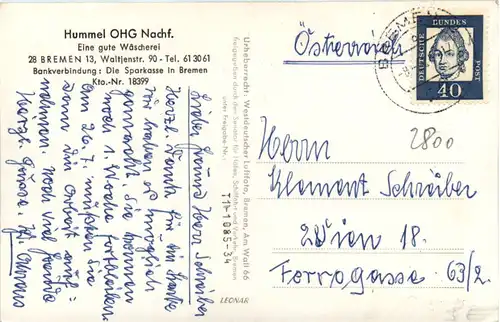 Hummel OHG Nachf.
Eine gute Wäscherei
28 BREMEN 13, Waltjenstr. 90 - Tel. 613061
Bankverbindung: Die Sparkasse in Bremen
Kto.-Nr. 18399
Lieber Freund Herr Schreiber
Herzl. Dank für die Karte
Wir haben es möglich
gemacht, Sie können
noch 1 Woche
am 26.7. müssen Sie
dann die Arbeit auf-
nehmen. noch viel Freude
Herzl. Grüsse,
Urheberrecht: Westdeutscher Luftfoto, Bremen, Am Wall 66
freigegeben durch den Senator für Häfen, Schiffahrt und Verkehr, Bremen
unter Freigabe-Nr.: 11-1085/34
LEONAR
Österreich
BREMEN
DEUTSCHE BUNDESPOST
40
2800
Herrn
Klement Schreiber
Wien 18.
Ferrogasse 63/2.